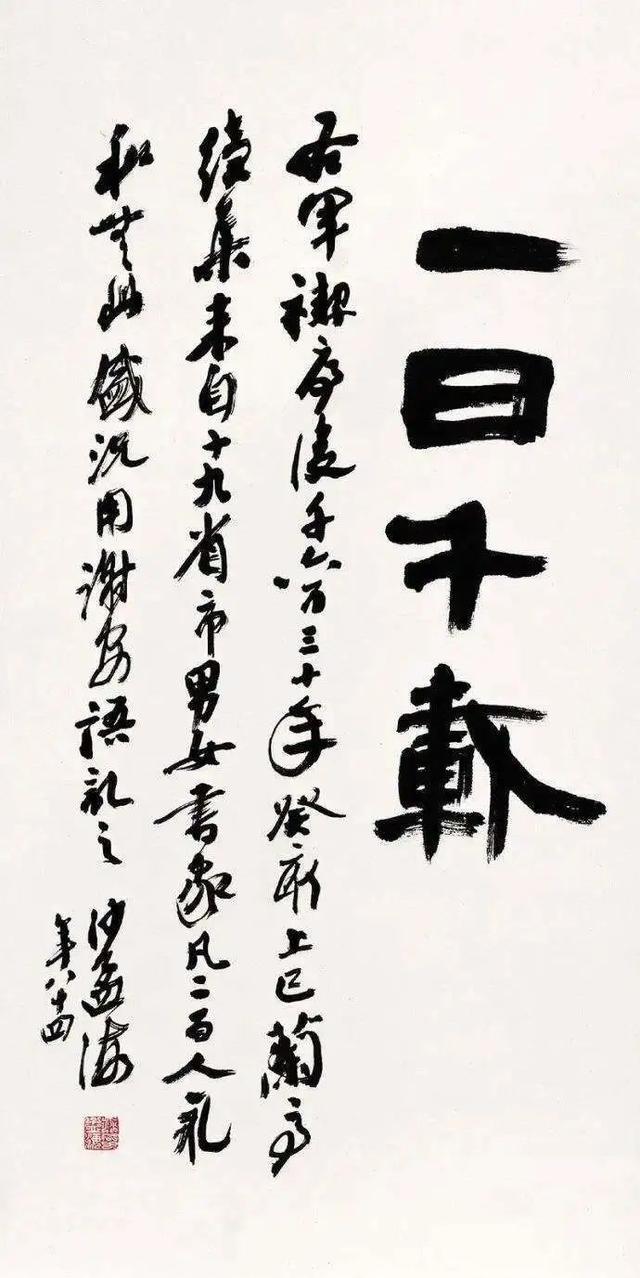 一日千載
右軍禊序後千六百三十年癸亥上巳蘭亭
續集来自十九省市男女書家凡二百人永
和無此盛況用謝安語記之 沙孟海
年八十四